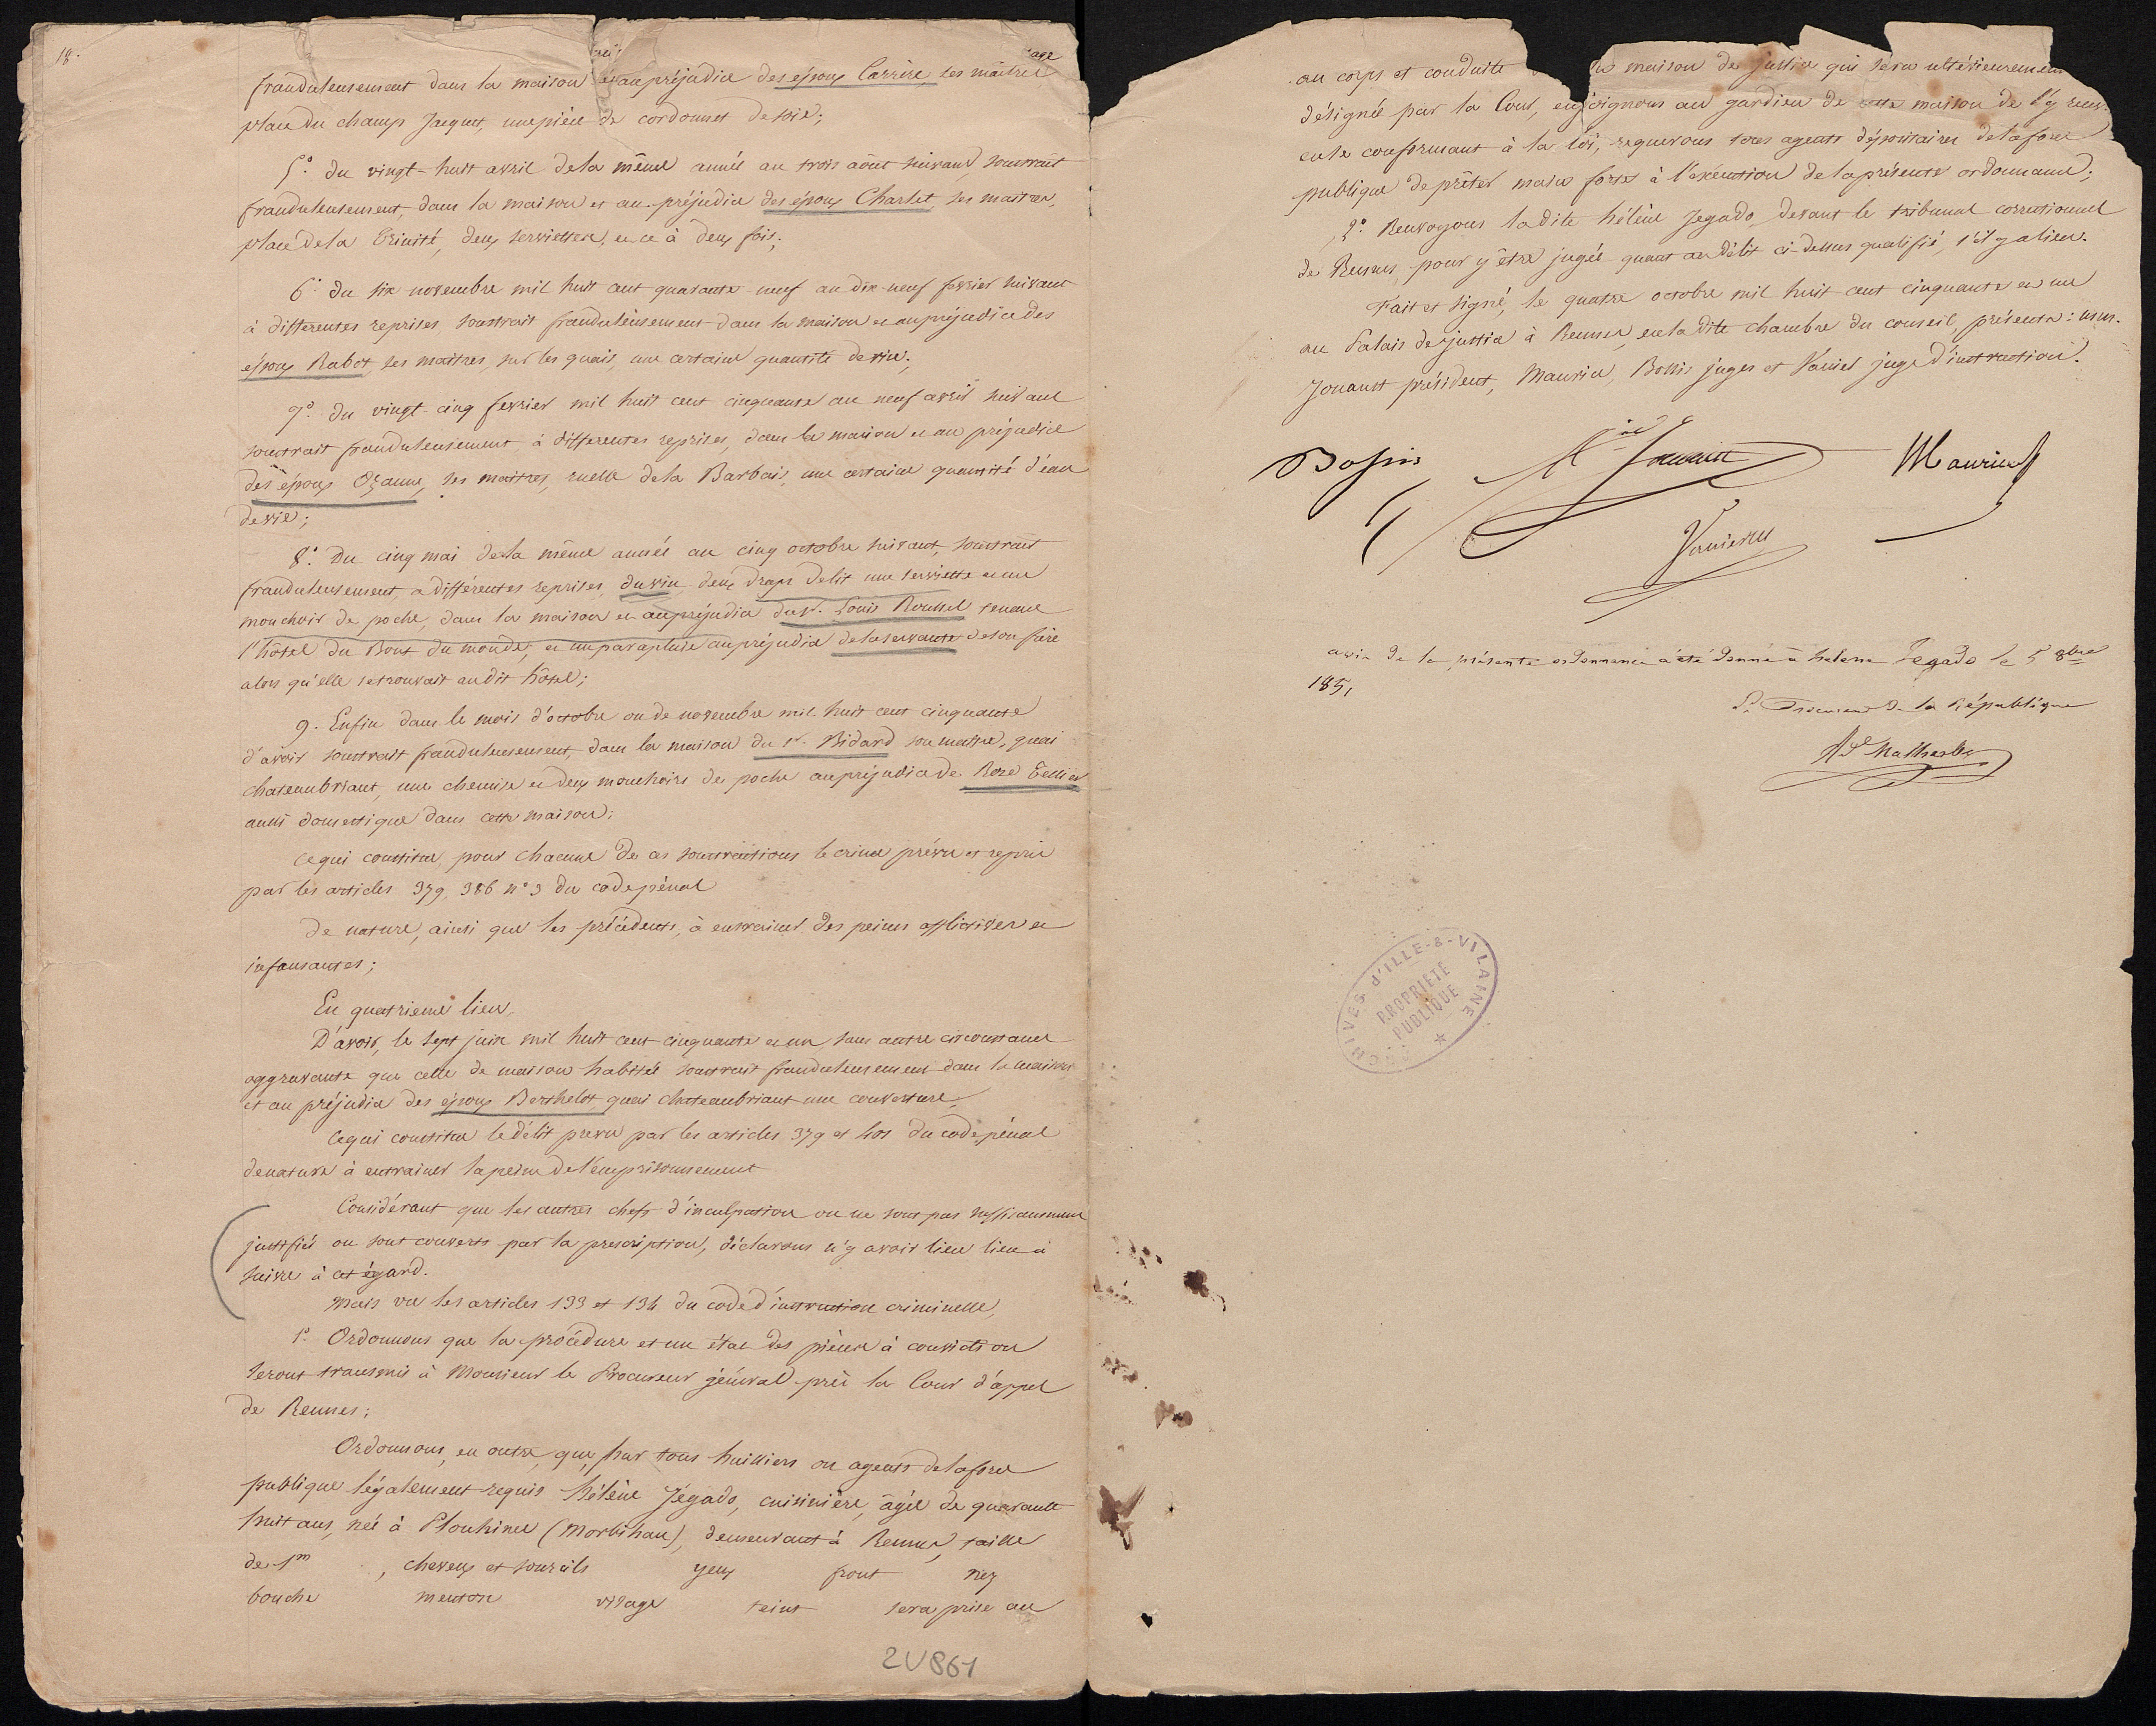 18.
frauduleusement dans la maison et au préjudice des époux Carrère, ses maîtres
place du champ Jacquet, une pièce de cordonnet de soie;
5°. du vingt-huit avril de la même année au trois août suivant, soustrait
frauduleusement, dans la maison et au préjudice des époux Charlet, ses maîtres,
place de la Trinité, deux serviettes, et ce à deux fois;
6°. du six novembre mil huit cent quarante-neuf au dix-neuf février suivant
à différentes reprises, soustrait frauduleusement dans la maison et au préjudice des
époux Rabot, ses maîtres, sur les quais, une certaine quantité de vin;
7°. du vingt-cinq février mil huit cent cinquante au neuf avril suivant
soustrait frauduleusement à différentes reprises, dans la maison et au préjudice
des époux Ozanne, ses maîtres, ruelle de la Barbais, une certaine quantité d'eau
de vie;
8°. Du cinq mai de la même année au cinq octobre suivant, soustrait
frauduleusement, à différentes reprises, du vin, deux draps de lit une serviette et un
mouchoir de poche, dans la maison et au préjudice du sr. Louis Roussel tenant
l'hôtel du Bout du monde; et un parapluie au préjudice de la servante de son frère
alors qu'elle se trouvait au dit hôtel;
9. Enfin dans le mois d'octobre ou de novembre mil huit cent cinquante
d'avoir soustrait frauduleusement, dans la maison du sr. Bidard son maître, quai
chateaubriant, une chemise et deux mouchoirs de poche au préjudice de Rose Tessier
aussi domestique dans cette maison;
ce qui constitue, pour chacune de ces soustractions le crime prévu et repris
par les articles 379, 386 n° 3 du code pénal
de nature, ainsi que les précédents, à entrainer des peines afflictives et
infamantes;
En quatrieme lieu,
D'avoir, le sept juin mil huit cent cinquante et un, sans autre circonstance
aggravante que celle de maison habitée soustrait frauduleusement dans la maison
et au préjudice des époux Berthelot, quai chateaubriant une couverture,
Ce qui constitue le délit prevu par les articles 379 et 401 du code pénal
de nature à entrainer la peine de l'emprisonnement
Considérant que les autres chefs d'inculpation ou ne sont pas suffisamment
justifiés ou sont couverts par la prescription, déclarons n'y avoir lieu lieu à
suivre à cet égard.
Mais vu les articles 133 et 134 du code d'instruction criminelle,
1°. Ordonnons que la procédure et un état des pièces à conviction
seront transmis à Monsieur le Procureur général près la Cour d'appel
de Rennes;
Ordonnons, en outre, que, par tous huissiers ou agents de la force
publique légalement requis hélène Jégado, cuisinière, âgée de quarante
huit ans, née à Plouhinec (Morbihan), demeurant à Rennes, taille
de 1m , cheveux et sourcils yeux front nez
bouche menton visage teint sera prise au
2U861
au corps et conduite maison de justice qui sera ultérieurement
désignée par la Cour, enjoignons au gardien de cette maison de l'y
en se conformant à la loi, requerons tous agents dépositaires de la force
publique de prêter main forte à l'exécution de la présente ordonnance;
2°. Renvoyons la dite hélène Jegado, devant le tribunal correctionnel
de Rennes pour y être jugée quant au délit ci-dessus qualifié, s'il y a lieu.
Fait et signé, le quatre octobre mil huit cent cinquante et un
au Palais de justice à Rennes, en la dite chambre du conseil, présents: MM.
Jouaust président, Maurice, Bossis juges et Vannier juge d'instruction.
Bossis
Jouaust
Maurice
Vannier
avis de la présente ordonnance a été donné à helene Jegado le 5 8bre
1851
Le Procureur de la République
Malherbe
ARCHIVES D'ILLE-&-VILAINE
PROPRIÉTÉ
PUBLIQUE